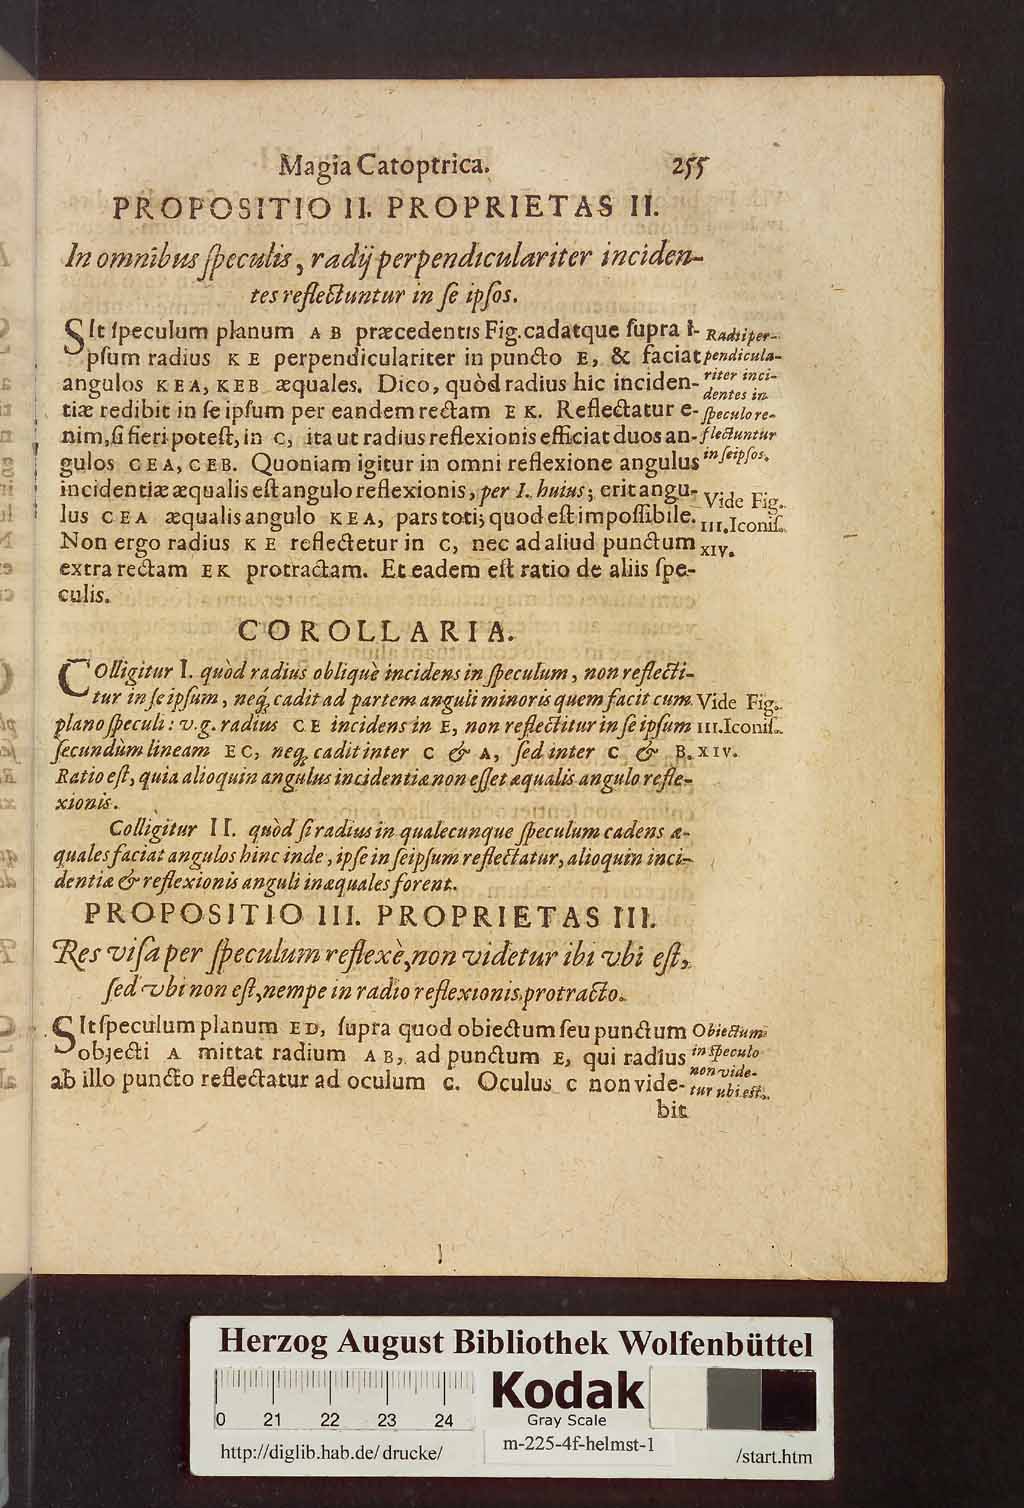 Magia Catoptrica. 255
PROPOSITIO II. PROPRIETAS II.
In omnibus ſpeculis, radij perpendiculariter inciden-
tes reflectuntur in ſe ipſos.
SIt ſpeculum planum A B præcedentis Fig. cadatque ſupra i-
pſum radius K E perpendiculariter in puncto E, & faciat
angulos K E A, K E B æquales. Dico, quòd radius hic inciden-
tiæ redibit in ſe ipſum per eandem rectam E K. Reflectatur e-
nim, ſi fieri poteſt, in C, ita ut radius reflexionis efficiat duos an-
gulos C E A, C E B. Quoniam igitur in omni reflexione angulus
incidentiæ æqualis eſt angulo reflexionis, per I. huius; erit angu-
lus C E A æqualis angulo K E A, pars toti; quod eſt impoſſibile.
Non ergo radius K E reflectetur in C, nec ad aliud punctum
extra rectam E K protractam. Et eadem eſt ratio de aliis ſpe-
culis.
Radii per-
pendicula-
riter inci-
dentes in
ſpeculo re-
flectuntur
in ſeipſos.
Vide Fig.
III. Iconiſ.
XIV.
COROLLARIA.
COlligitur I. quòd radius obliquè incidens in ſpeculum, non reflecti-
tur in ſe ipſum, neq; cadit ad partem anguli minoris quem facit cum
plano ſpeculi: v.g. radius C E incidens in E, non reflectitur in ſe ipſum
ſecundùm lineam E C, neq; cadit inter C & A, ſed inter C & B.
Ratio eſt, quia alioquin angulus incidentiæ non eſſet æqualis angulo refle-
xionis.
Vide Fig.
III. Iconiſ.
XIV.
Colligitur II. quòd ſi radius in qualecunque ſpeculum cadens æ-
quales faciat angulos hinc inde, ipſe in ſeipſum reflectatur, alioquin inci-
dentiæ & reflexionis anguli inæquales forent.
PROPOSITIO III. PROPRIETAS III.
Res viſa per ſpeculum reflexè, non videtur ibi vbi eſt,
ſed vbi non eſt, nempe in radio reflexionis protracto.
SIt ſpeculum planum E D, ſupra quod obiectum ſeu punctum
objecti A mittat radium A B, ad punctum E, qui radius
ab illo puncto reflectatur ad oculum C. Oculus C non vide-
Obiectum
in ſpeculo
non vide-
tur ubi eſt.
bit
Herzog August Bibliothek Wolfenbüttel
0 21 22 23 24
Kodak
Gray Scale
http://diglib.hab.de/drucke/
m-225-4f-helmst-1
/start.htm